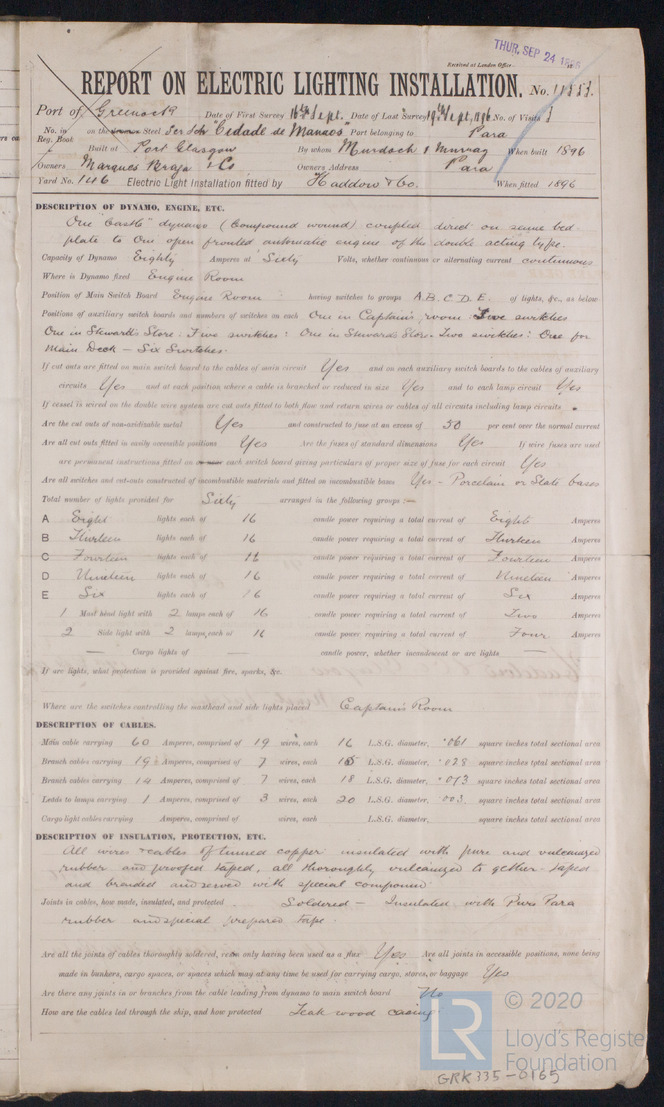 THUR. SEP 24 1896
Received at London Office
REPORT ON ELECTRIC LIGHTING INSTALLATION. No. 11553.
Port of Greenock Date of First Survey 16th Sept. Date of Last Survey 19th Sept, 1896 No. of Visits 3
No. in Reg. Book on the Steel Scr Sch "Cidade de Manaos" Port belonging to Para
Built at Port Glasgow By whom Murdoch & Murray When built 1896
Owners Marques Braga & Co Owners Address Para
Yard No. 146 Electric Light Installation fitted by Haddow & Co. When fitted 1896
DESCRIPTION OF DYNAMO, ENGINE, ETC.
One "Castle" dynamo (Compound wound) coupled direct on same bed
plate to One open fronted automatic engine of the double acting type.
Capacity of Dynamo Eighty Amperes at Sixty Volts, whether continuous or alternating current continuous
Where is Dynamo fixed Engine Room
Position of Main Switch Board Engine Room having switches to groups A.B.C.D.E. of lights, &c., as below
Positions of auxiliary switch boards and numbers of switches on each One in Captains room Five switches
One in Stewards Store. Five switches: One in Stewards Store. Two switches: One for
Main Deck - Six Switches.
If cut outs are fitted on main switch board to the cables of main circuit Yes and on each auxiliary switch boards to the cables of auxiliary
circuits Yes and at each position where a cable is branched or reduced in size Yes and to each lamp circuit Yes
If vessel is wired on the double wire system are cut outs fitted to both flow and return wires or cables of all circuits including lamp circuits
Are the cut outs of non-oxidizable metal Yes and constructed to fuse at an excess of 50 per cent over the normal current
Are all cut outs fitted in easily accessible positions Yes Are the fuses of standard dimensions Yes If wire fuses are used
are permanent instructions fitted on each switch board giving particulars of proper size of fuse for each circuit Yes
Are all switches and cut-outs constructed of incombustible materials and fitted on incombustible bases Yes - Porcelain or Slate bases
Total number of lights provided for Sixty arranged in the following groups :—
A Eight lights each of 16 candle power requiring a total current of Eight Amperes
B Thirteen lights each of 16 candle power requiring a total current of Thirteen Amperes
C Fourteen lights each of 16 candle power requiring a total current of Fourteen Amperes
D Nineteen lights each of 16 candle power requiring a total current of Nineteen Amperes
E Six lights each of 16 candle power requiring a total current of Six Amperes
1 Mast head light with 2 lamps each of 16 candle power requiring a total current of Two Amperes
2 Side light with 2 lamps each of 16 candle power requiring a total current of Four Amperes
— Cargo lights of — candle power, whether incandescent or arc lights —
If arc lights, what protection is provided against fire, sparks, &c.
Where are the switches controlling the masthead and side lights placed Captains Room
DESCRIPTION OF CABLES.
Main cable carrying 60 Amperes, comprised of 19 wires, each 16 L.S.G. diameter, ·061 square inches total sectional area
Branch cables carrying 19 Amperes, comprised of 7 wires, each L.S.G. diameter, ·028 square inches total sectional area
Branch cables carrying 14 Amperes, comprised of 7 wires, each 18 L.S.G. diameter, ·013 square inches total sectional area
Leads to lamps carrying 1 Amperes, comprised of 3 wires, each 20 L.S.G. diameter, ·003 square inches total sectional area
Cargo light cables carrying Amperes, comprised of wires, each L.S.G. diameter, square inches total sectional area
DESCRIPTION OF INSULATION, PROTECTION, ETC.
All wires & cables of tinned copper insulated with pure and vulcanized
rubber and proofed taped, all thoroughly vulcanized to gether - taped
and braided and served with special compound
Joints in cables, how made, insulated, and protected Soldered — Insulated with Pure Para
rubber and special prepared tape.
Are all the joints of cables thoroughly soldered, resin only having been used as a flux Yes Are all joints in accessible positions, none being
made in bunkers, cargo spaces, or spaces which may at any time be used for carrying cargo, stores, or baggage Yes
Are there any joints in or branches from the cable leading from dynamo to main switch board No
How are the cables led through the ship, and how protected Teak wood casing
LR © 2020
Lloyd's Registe
Foundation
GRK335-0165